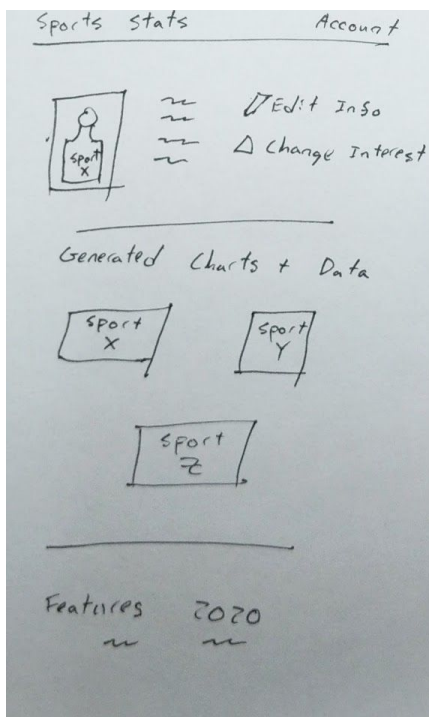 Sports Stats Account
Sport
X
Edit Info
Change Interest
Generated Charts + Data
Sport
X
Sport
Y
Sport
Z
Features 2020